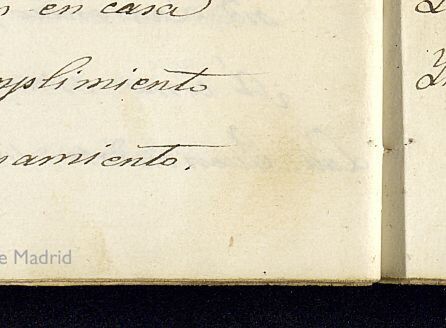 en casa
mplimiento
namiento.
e Madrid